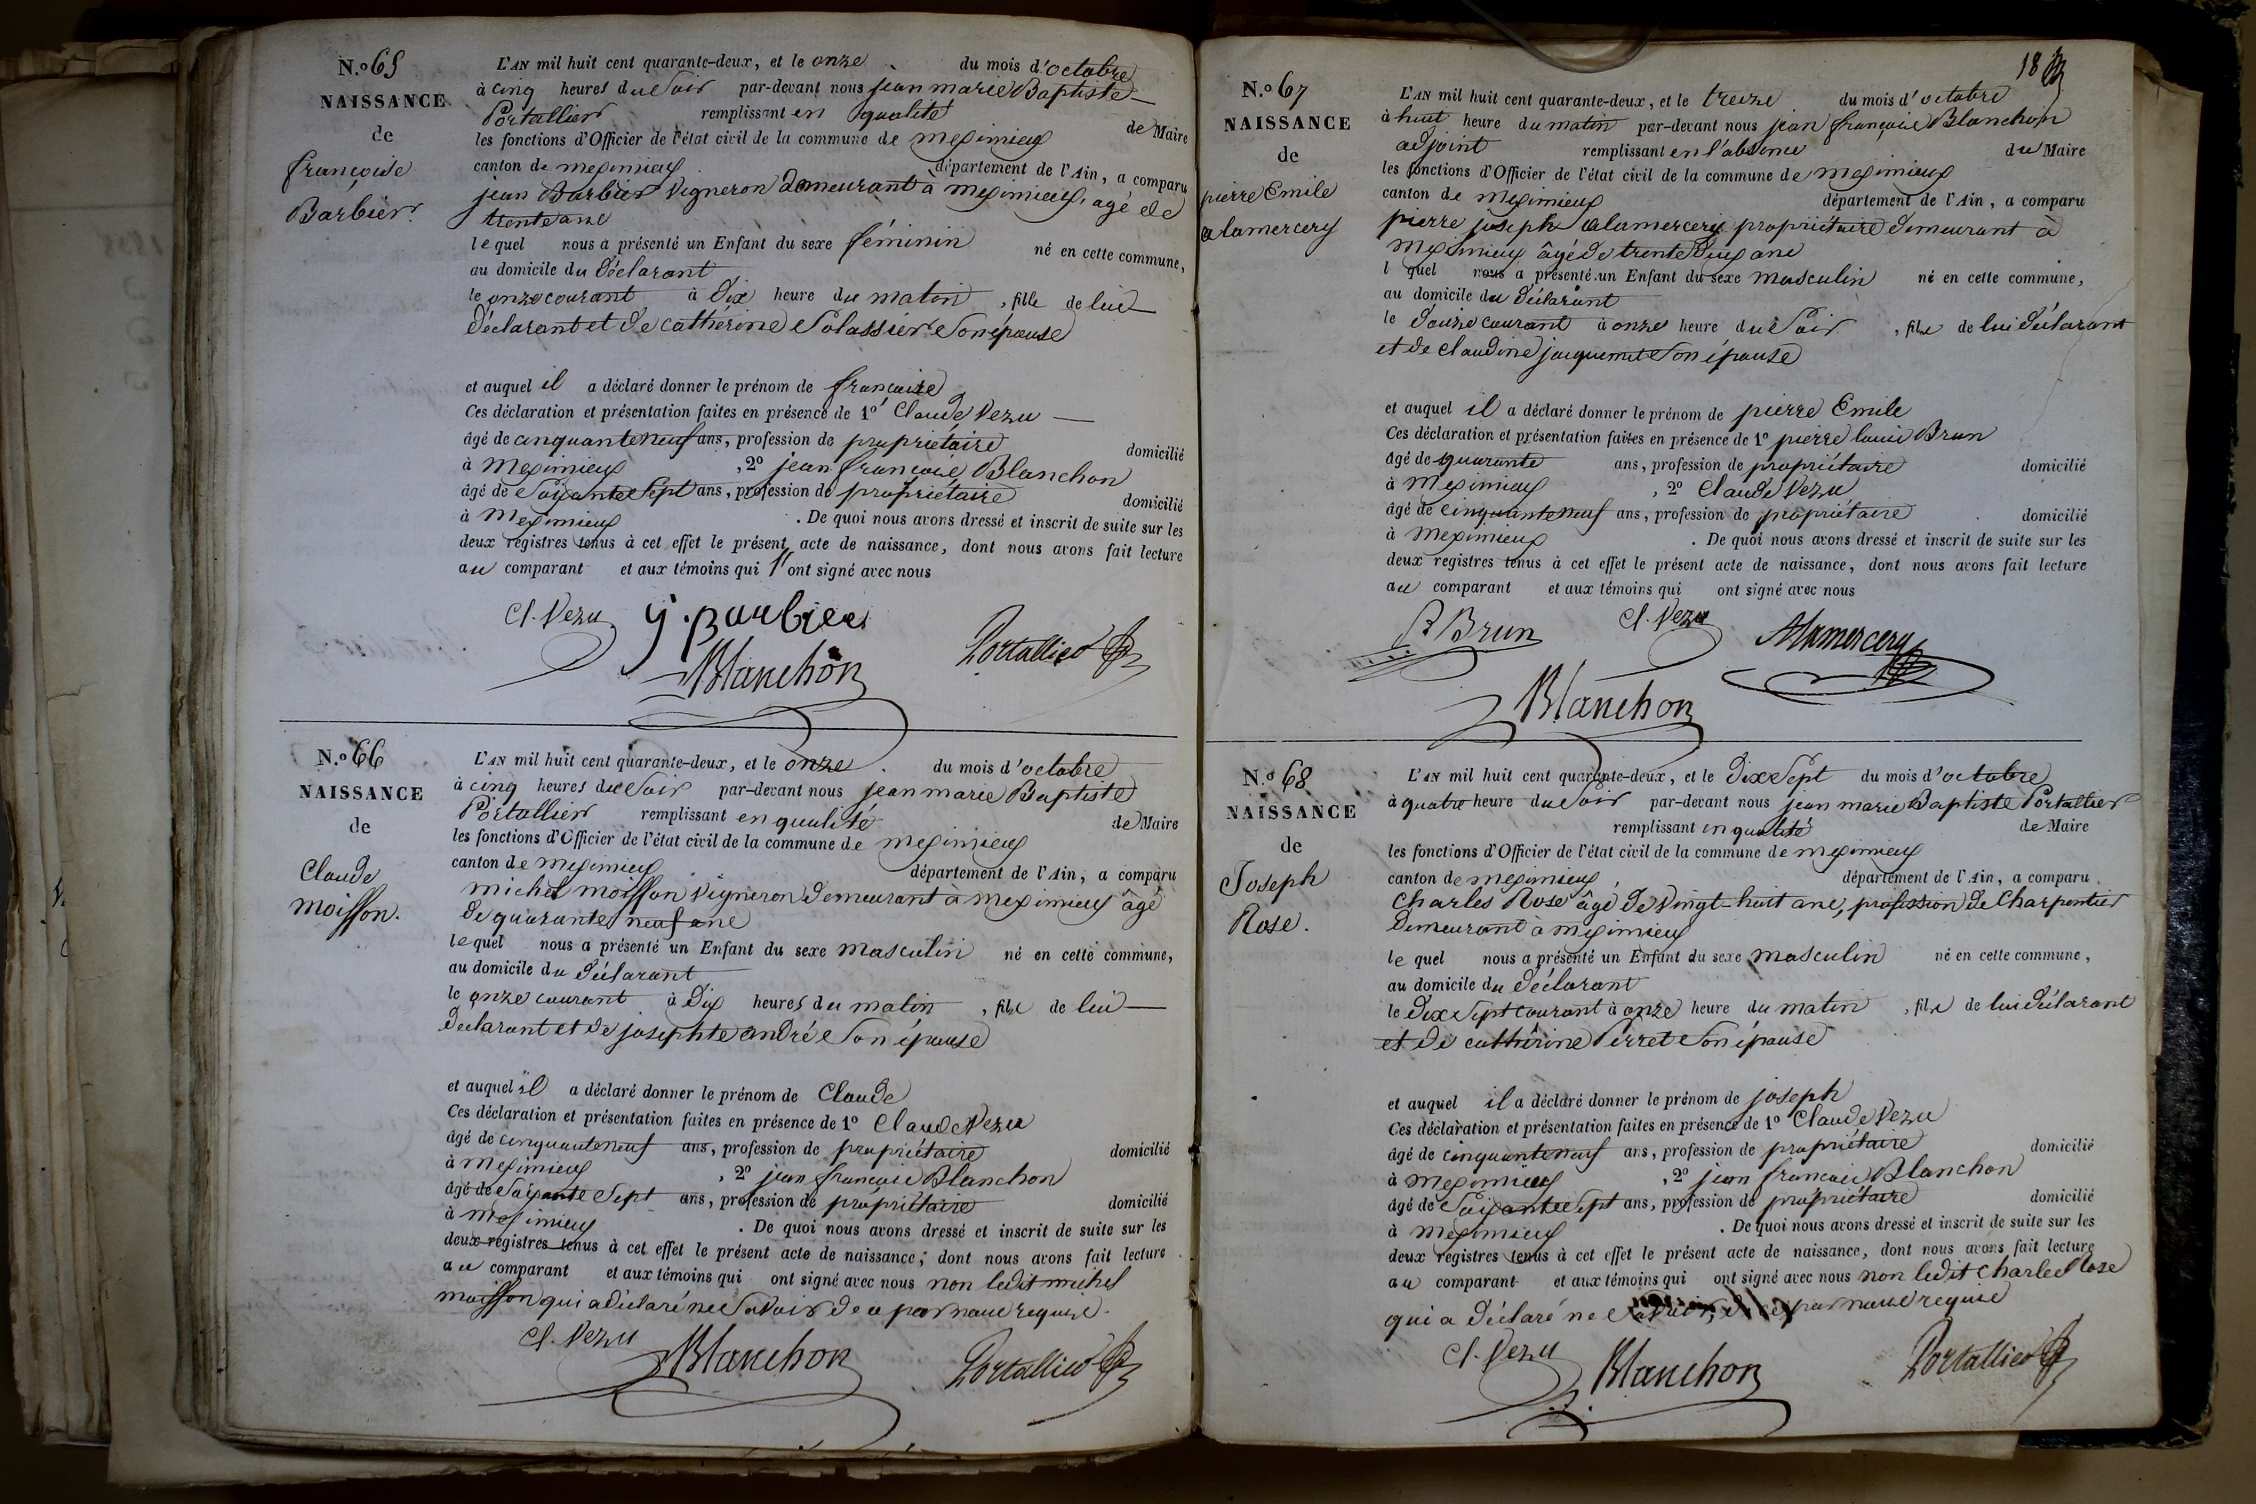 N.o 65
NAISSANCE
de
françoise
Barbier.
L'AN mil huit cent quarante-deux, et le onze du mois d'octobre
à cinq heures du Soir par-devant nous jean marie Baptiste
Portallier remplissant en qualité de Maire
les fonctions d'Officier de l'état civil de la commune de meximieux
canton de meximieux département de l'Ain, a comparu
jean Barbier Vigneron demeurant à meximieux, agé de
trente ans
lequel nous a présenté un Enfant du sexe féminin né en cette commune,
au domicile du Déclarant
le onze courant à Dix heure du matin, fille de lui
Déclarant et de cathérine Solassier Son épouse
et auquel il a déclaré donner le prénom de françoise
Ces déclaration et présentation faites en présence de 1o Claude Vezu
âgé de cinquante neuf ans, profession de propriétaire domicilié
à Meximieux, 2o jean françois Blanchon
âgé de Soixante Sept ans, profession de propriétaire domicilié
à Meximieux. De quoi nous avons dressé et inscrit de suite sur les
deux registres tenus à cet effet le présent acte de naissance, dont nous avons fait lecture
au comparant et aux témoins qui l'ont signé avec nous
Cl. Vezu j. barbier
Blanchon Portallier
N.o 66
NAISSANCE
de
Claude
moisson.
L'AN mil huit cent quarante-deux, et le onze du mois d'octobre
à cinq heures du Soir par-devant nous jean marie Baptiste
Portallier remplissant en qualité de Maire
les fonctions d'Officier de l'état civil de la commune de meximieux
canton de meximieux département de l'Ain, a comparu
michel moisson Vigneron demeurant à meximieux âgé
de quarante neuf ans
lequel nous a présenté un Enfant du sexe masculin né en cette commune,
au domicile du Déclarant
le onze courant à Dix heures du matin, fils de lui
Déclarant et de josephte andré Son épouse
et auquel il a déclaré donner le prénom de Claude
Ces déclaration et présentation faites en présence de 1o Claude Vezu
âgé de cinquante neuf ans, profession de propriétaire domicilié
à Meximieux, 2o jean françois Blanchon
âgé de Soixante Sept ans, profession de propriétaire domicilié
à Meximieux. De quoi nous avons dressé et inscrit de suite sur les
deux registres tenus à cet effet le présent acte de naissance; dont nous avons fait lecture
au comparant et aux témoins qui ont signé avec nous non ledit michel
moisson qui a déclaré ne Savoir de ce par nous requis.
Cl. Vezu Blanchon Portallier
18
N.o 67
NAISSANCE
de
pierre Emile
alamercery
L'AN mil huit cent quarante-deux, et le treize du mois d'octobre
à huit heure du matin par-devant nous jean françois Blanchon
adjoint remplissant en l'absence du Maire
les fonctions d'Officier de l'état civil de la commune de meximieux
canton de meximieux département de l'Ain, a comparu
pierre joseph alamercery propriétaire demeurant à
meximieux âgé de trente Deux ans
l quel nous a présenté un Enfant du sexe masculin né en cette commune,
au domicile du Déclarant
le Douze courant à onze heure du Soir, fils de lui Déclarant
et de claudine jacquemet Son épouse
et auquel il a déclaré donner le prénom de pierre Emile
Ces déclaration et présentation faites en présence de 1o pierre louis Brun
âgé de quarante ans, profession de propriétaire domicilié
à Meximieux, 2o Claude Vezu
âgé de cinquante neuf ans, profession de propriétaire domicilié
à Meximieux. De quoi nous avons dressé et inscrit de suite sur les
deux registres tenus à cet effet le présent acte de naissance, dont nous avons fait lecture
au comparant et aux témoins qui ont signé avec nous
Brun Cl. Vezu Alamercery
Blanchon
N.o 68
NAISSANCE
de
Joseph
Rose.
L'AN mil huit cent quarante-deux, et le Dix Sept du mois d'octobre
à quatre heure du Soir par-devant nous jean marie Baptiste Portallier
remplissant en qualité de Maire
les fonctions d'Officier de l'état civil de la commune de meximieux
canton de meximieux, département de l'Ain, a comparu
Charles Rose âgé de Vingt-huit ans, profession de Charpentier
Demeurant à meximieux
le quel nous a présenté un Enfant du sexe masculin né en cette commune,
au domicile du Déclarant
le Dix Sept courant à onze heure du matin, fils de lui Déclarant
et de cathérine Perret Son épouse
et auquel il a déclaré donner le prénom de joseph
Ces déclaration et présentation faites en présence de 1o Claude Vezu
âgé de cinquante neuf ans, profession de propriétaire domicilié
à Meximieux, 2o jean françois Blanchon
âgé de Soixante Sept ans, profession de propriétaire domicilié
à Meximieux. De quoi nous avons dressé et inscrit de suite sur les
deux registres tenus à cet effet le présent acte de naissance, dont nous avons fait lecture
au comparant et aux témoins qui ont signé avec nous non ledit Charles Rose
qui a Déclaré ne Savoir, de ce par nous requis
Cl. Vezu Blanchon Portallier